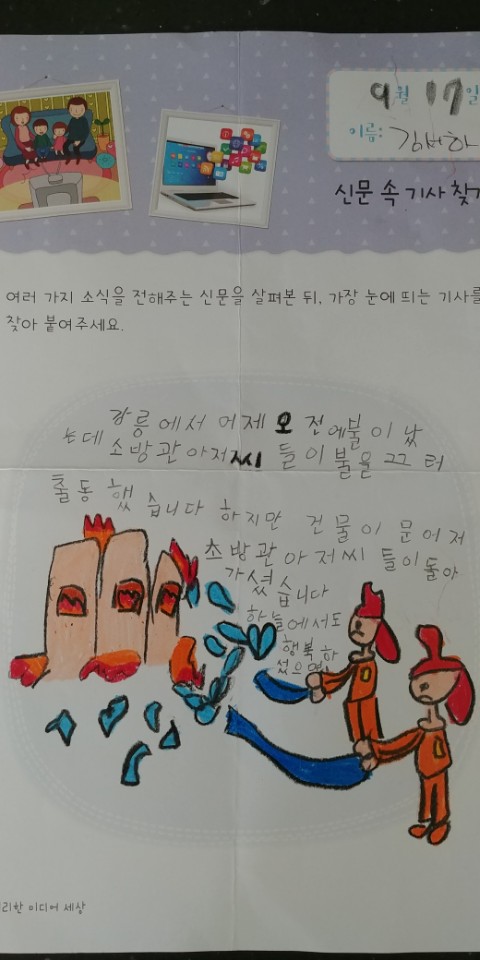 9월 17일
이름: 김
신문 속 기사 찾기
여러 가지 소식을 전해주는 신문을 살펴본 뒤, 가장 눈에 띄는 기사를
찾아 붙여주세요.
강릉에서 어제 오전에불이 났
는데 소방관아저씨들이불을끄터
출동했습니다 하지만 건물이 문어저
초방관아저씨들이돌아
가셨습니다
하늘에서도
행복하
셨으면
리한 미디어 세상